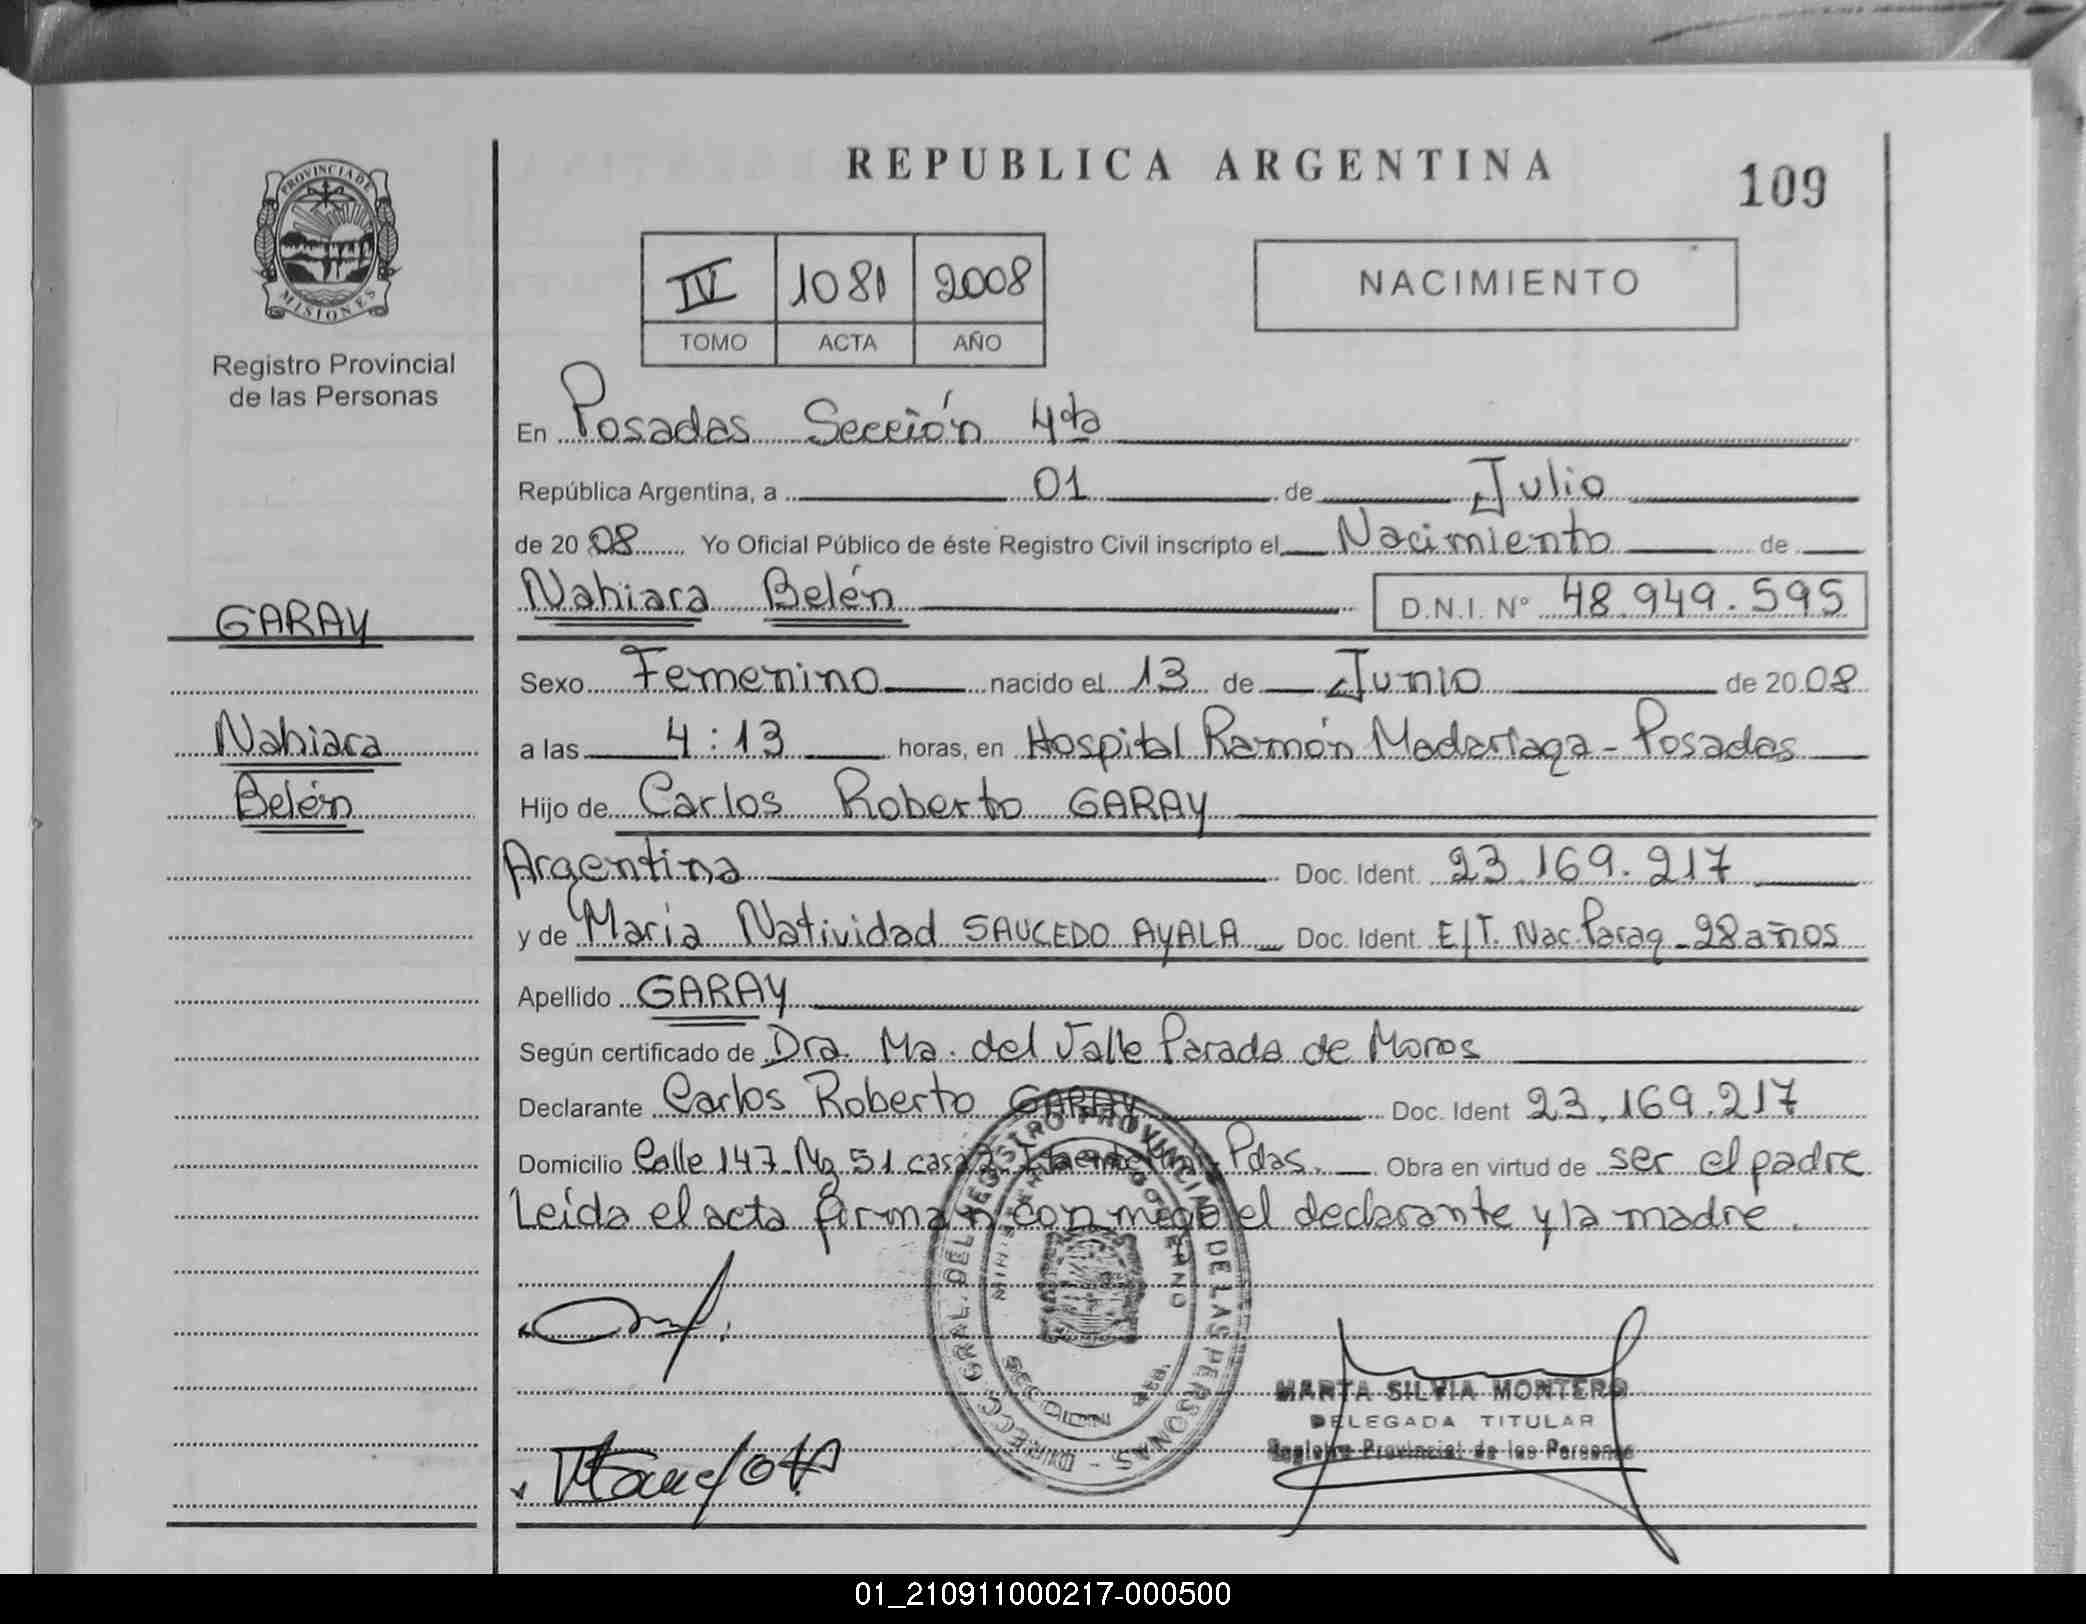 REPUBLICA ARGENTINA
109
PROVINCIA DE
MISIONES
Registro Provincial
de las Personas
IV 1081 2008
TOMO ACTA AÑO
NACIMIENTO
En Posadas Sección 4ta
República Argentina, a 01 de Julio
de 20 08 Yo Oficial Público de éste Registro Civil inscripto el Nacimiento de
Nahiara Belén D.N.I. Nº 48.949.595
GARAY
Nahiara
Belén
Sexo Femenino nacido el 13 de Junio de 20 08
a las 4:13 horas, en Hospital Ramón Madariaga - Posadas
Hijo de Carlos Roberto GARAY
Argentina Doc. Ident. 23.169.217
y de María Natividad SAUCEDO AYALA Doc. Ident. E/T. Nac. Parag - 28 años
Apellido GARAY
Según certificado de Dra. Ma. del Valle Parada de Moros
Declarante Carlos Roberto GARAY Doc. Ident 23.169.217
Domicilio Calle 147 Mz 51 casa Pdas. Obra en virtud de ser el padre
Leída el acta firman conmigo el declarante y la madre.
DIRECC. GRAL. DEL REGISTRO PROVINCIAL DE LAS PERSONAS -
MINISTERIO DE GOBIERNO
SECCION
MARTA SILVIA MONTERO
DELEGADA TITULAR
Registro Provincial de las Personas
01_210911000217-000500